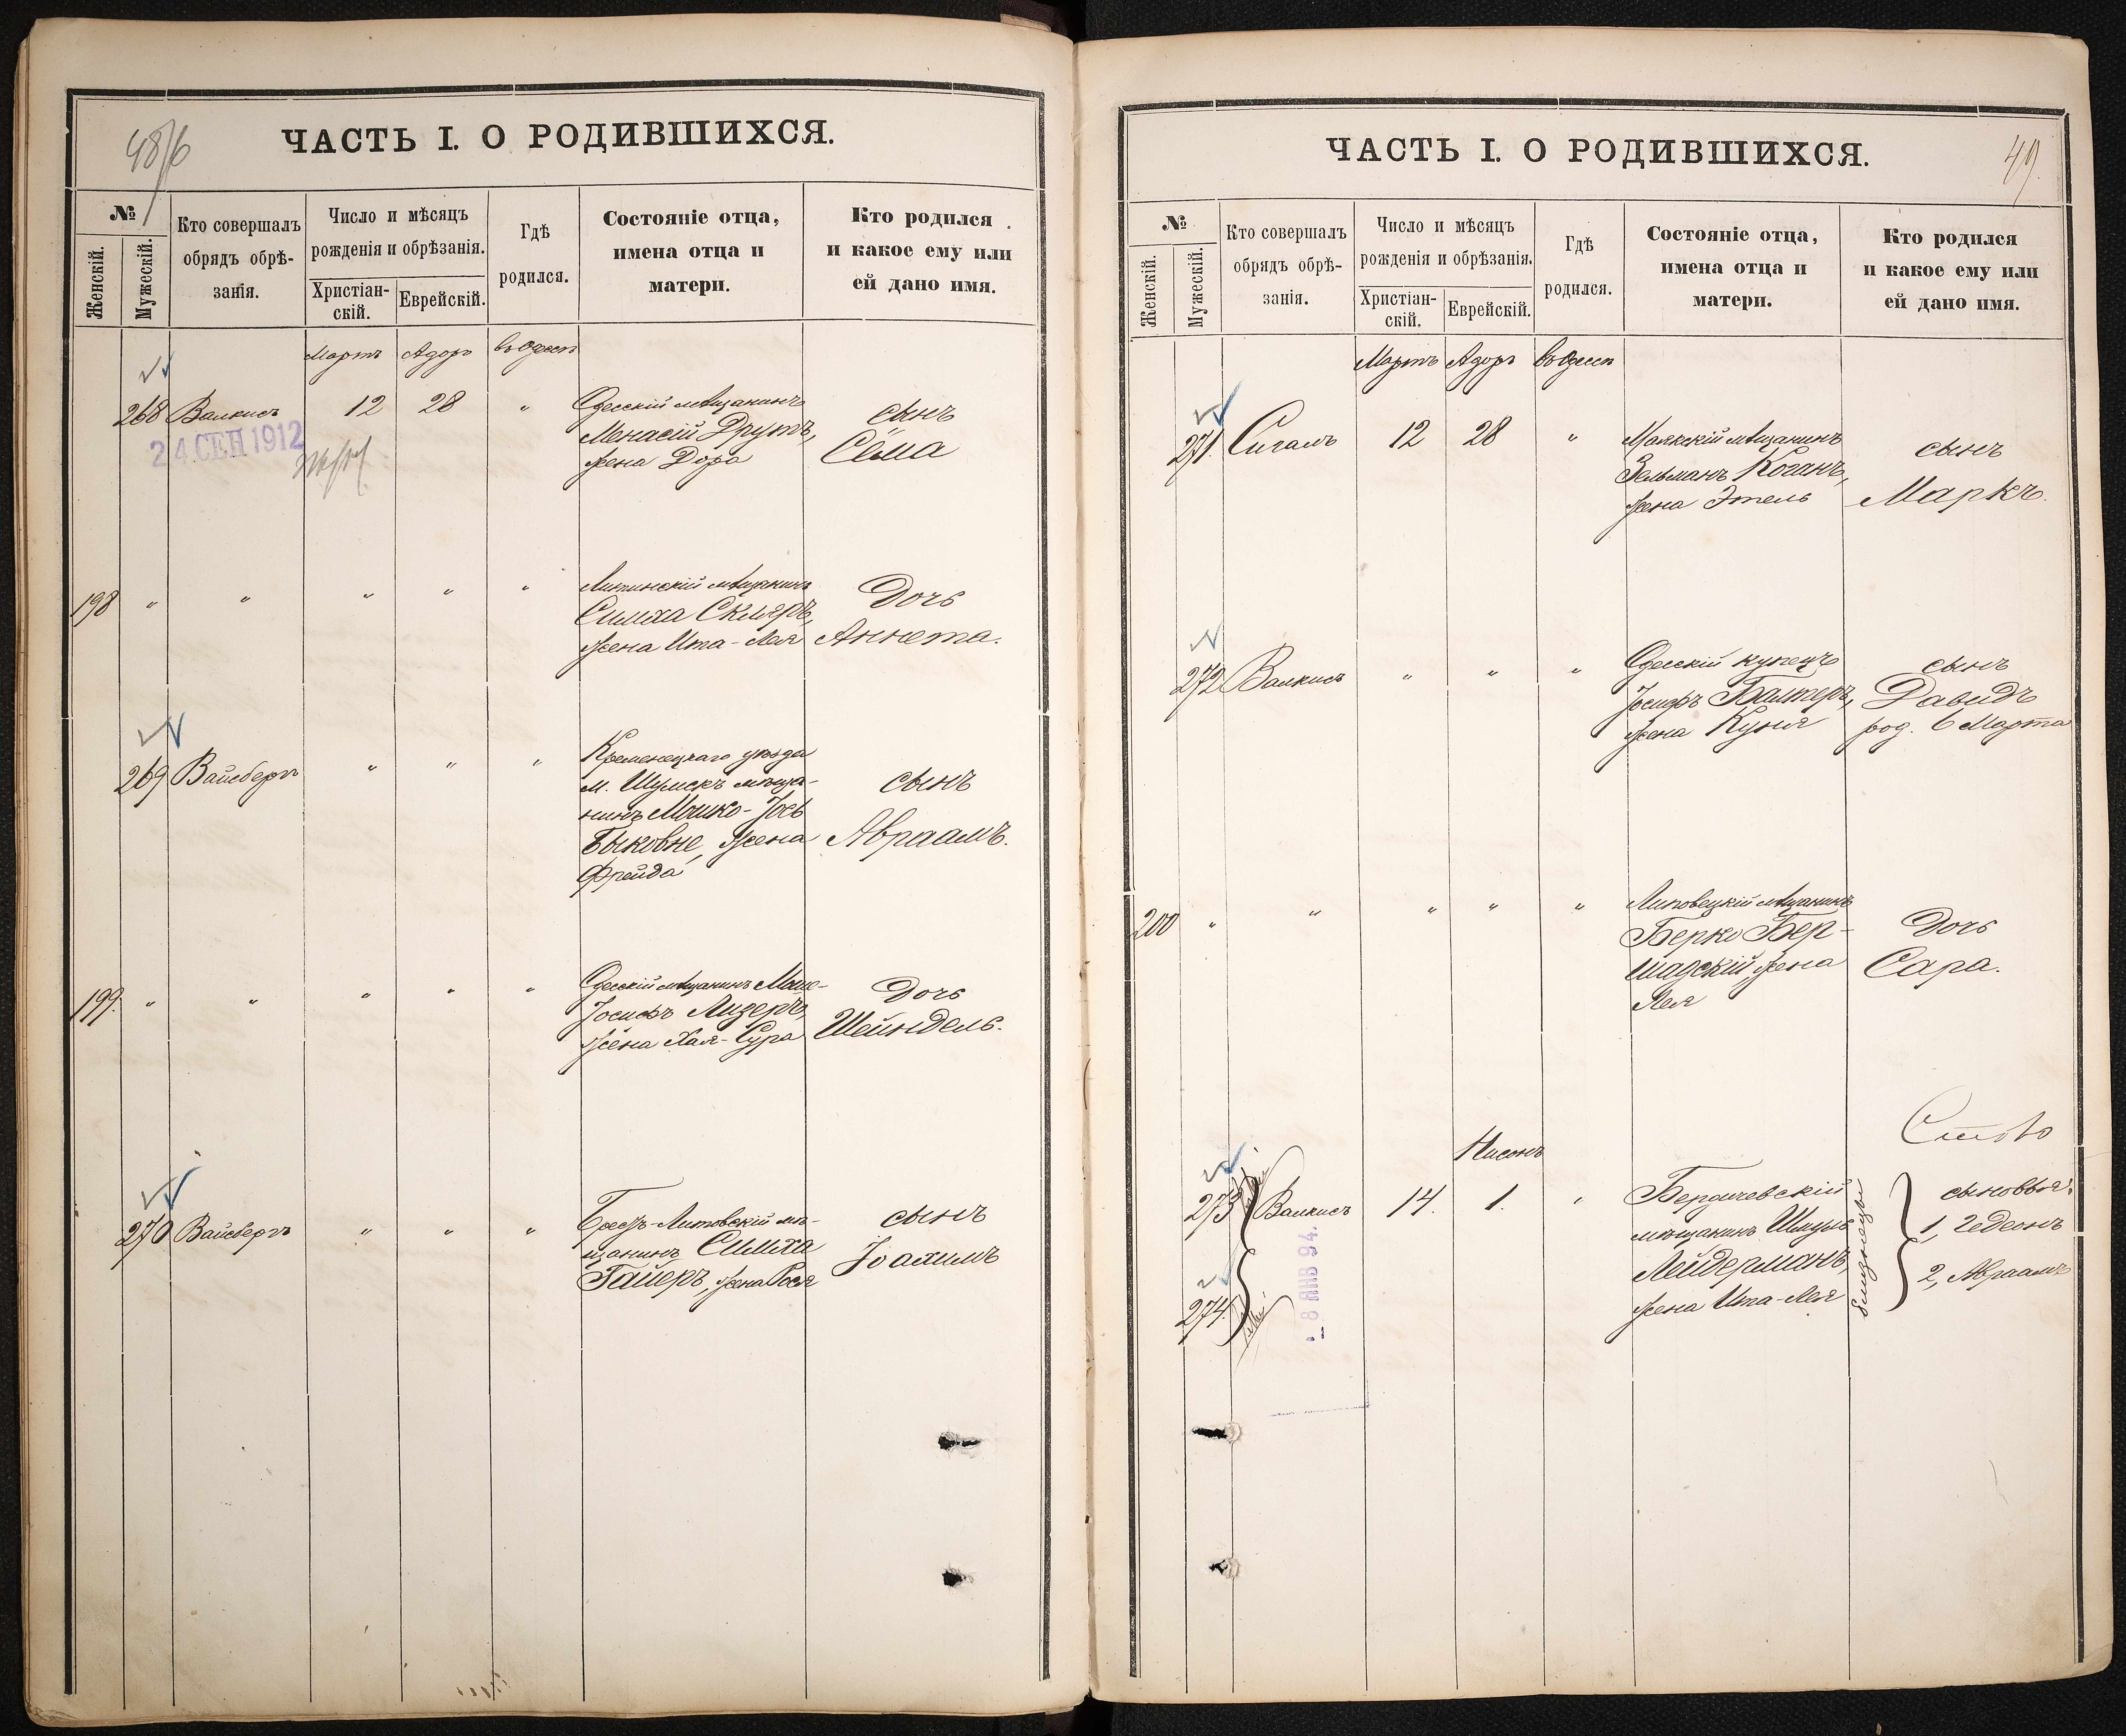 48/6
ЧАСТЬ I. О РОДИВШИХСЯ.
№
Женскій.
Мужескій.
Кто совершалъ
обрядъ обрѣ-
занія.
Число и мѣсяцъ
рожденія и обрѣзанія.
Христіан-
скій.
Еврейскій.
Гдѣ
родился.
Состояніе отца,
имена отца и
матери.
Кто родился
и какое ему или
ей дано имя.
Мартъ Адоръ въ Одессѣ
268 Валкисъ 12 28 " Одесскій мѣщанинъ
Менасій Друтъ,
жена Дора
сынъ
Сёма
24 СЕН 1912
198 " " " " " Литинскій мѣщанинъ
Симха Скляръ,
жена Ита-Лея
Дочь
Аннета.
269 Вайсбергъ " " " Кременецкаго уѣзда
м. Шумскъ мѣща-
нинъ Мошко-Іось
Быковне, жена
Фрейда
сынъ
Авраамъ.
199. " " " " " Одесскій мѣщанинъ Моше-
Іосифъ Лидеръ,
жена Хая-Сура
Дочь
Шейндель.
270 Вайсбергъ " " " Брестъ-Литовскій мѣ-
щанинъ Симха
Гайеръ, жена Рося
сынъ
Іоахимъ
49.
ЧАСТЬ I. О РОДИВШИХСЯ.
№
Женскій.
Мужескій.
Кто совершалъ
обрядъ обрѣ-
занія.
Число и мѣсяцъ
рожденія и обрѣзанія.
Христіан-
скій.
Еврейскій.
Гдѣ
родился.
Состояніе отца,
имена отца и
матери.
Кто родился
и какое ему или
ей дано имя.
Мартъ Адоръ въ Одессѣ
271. Сигалъ 12 28 " Маякскій мѣщанинъ
Зельманъ Коганъ,
жена Этель
сынъ
Маркъ.
272 Валкисъ " " " Одесскій купецъ
Іосифъ Балтеръ,
жена Куня
сынъ
Давидъ
род. 6 Марта
200 " " " " " Липовецкій мѣщанинъ
Берко Бер-
шадскій жена
Лея
Дочь
Сара.
Нисонъ
273 Валкисъ 14. 1. " Бердичевскій
мѣщанинъ Шмуль
Лейдерманъ,
жена Ита-Лея
близнецы
сыновья:
1, Гедеонъ
2, Авраамъ
274.
8 ЯНВ 94.